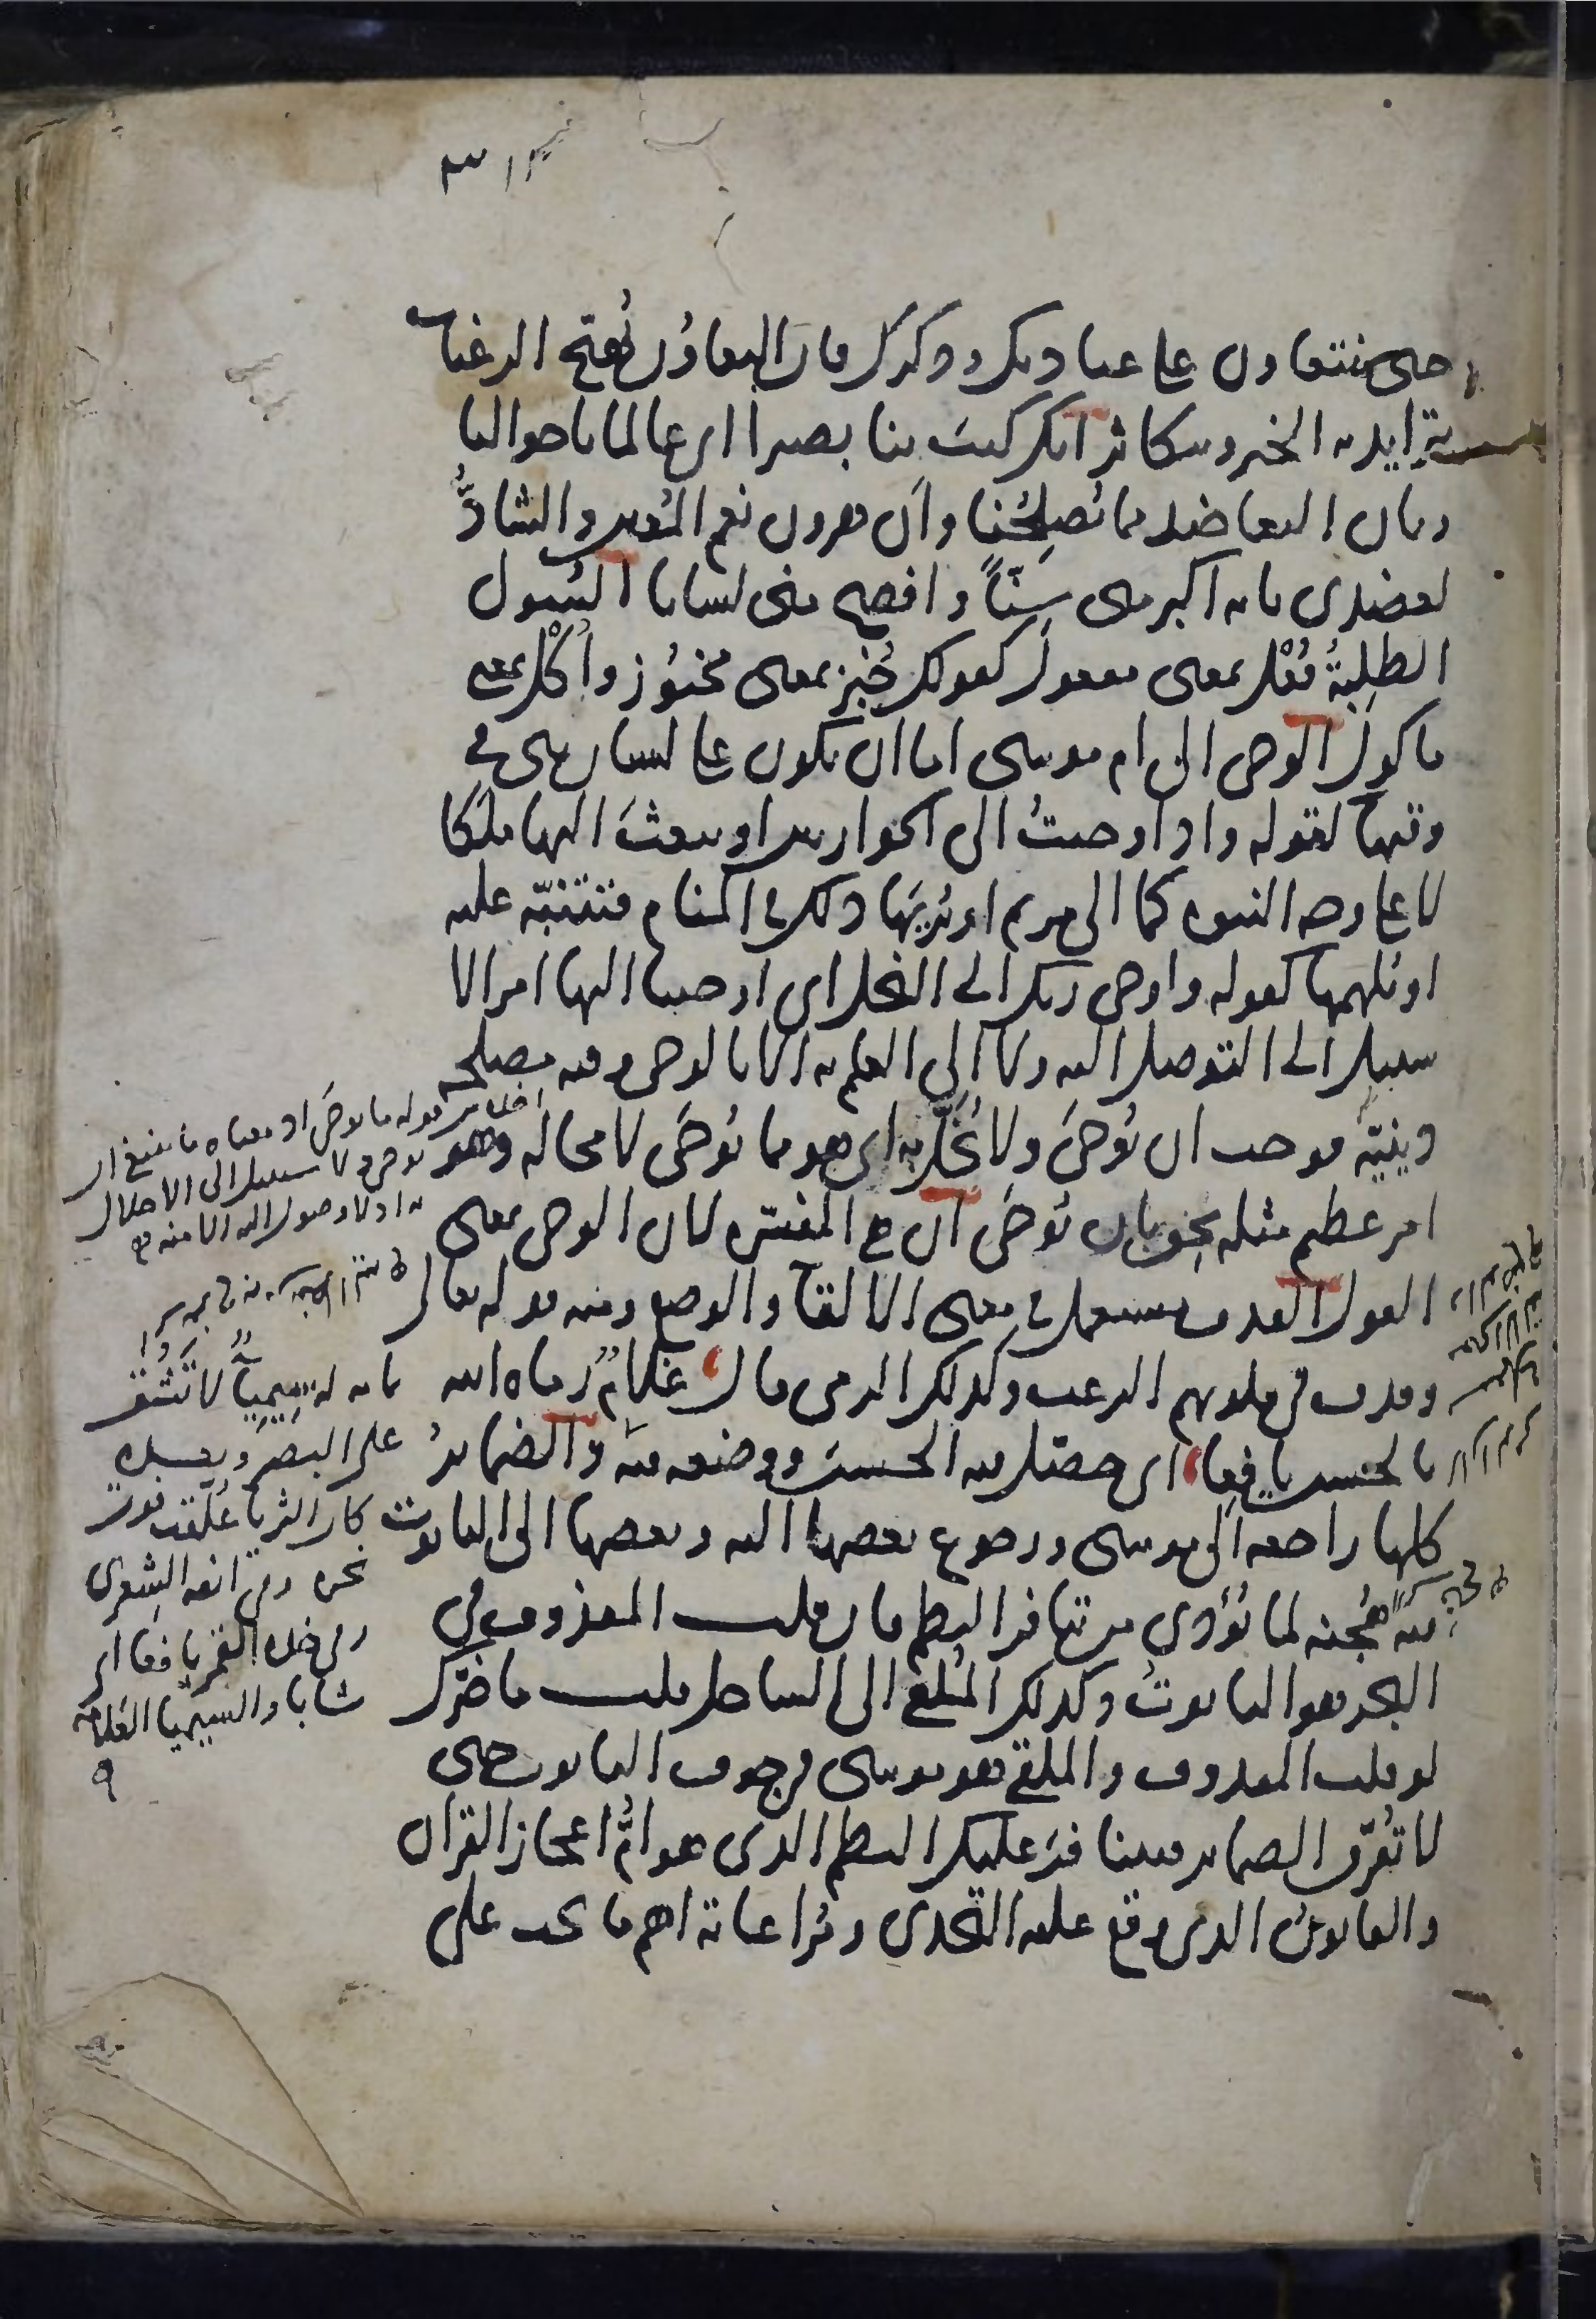 ٣١
حتى نتعاون على عبادتك وذكرك فان التعاون يُهيّج الرغبات
يتزايد به الخير ويتكاثر انك كنتَ بنا بصيرا اى عالما باحوالنا
وبان التعاضد مما يُصلِحُنا وأن هرون نعم المُعين والشادُّ
لعضدى بانه اكبر منى سِنّاً وافصح منى لسانا السؤل
الطلِبةُ فُعْل بمعنى مفعول كقولك خُبز بمعنى مخبوز وأُكْل بمعنى
ماكول الوحى الى ام موسى اما ان يكون على لسان نبى فى
وقتها لقوله واذ اوحيتُ الى الحواريين او يبعثَ اليها ملَكا
لا على وجه النبوه كما الى مريم او يُرِيَها ذلك فى المنام فتتنبّه عليه
او يُلهمها كقوله واوحى ربك الى النحل اى اوحينا اليها امرا لا
سبيل الى التوصل اليه ولا الى العلم به الا بالوحى وفيه مصلحه
دينيّه فوجب ان يُوحَى ولا يُخَلَّ به اى هو مما يُوحَى لا محاله وهو
امر عظيم مثله يحق بان يُوحَى أن هى المفسّره لان الوحى بمعنى
القول القذف مستعمل فى معنى الالقا والوضع ومنه قوله تعالى
وقذف فى قلوبهم الرعب وكذلك الرمى قال غلامٌ رماه الله
بالحسن يافعا اى حصّل فيه الحسنَ ووضعه فيه والضمايرُ
كلها راجعه الى موسى ورجوع بعضها اليه وبعضها الى التابوت
فيه هُجنه لما يُؤدى من تنافر النظم فان قلت المقذوف فى
البحر هو التابوتُ وكذلك المُلقَى الى الساحل قلت ما ضرّك
لو قلت المقذوف والملقى هو موسى فى جوف التابوت حتى
لا تُفرّق الضماير فيتنافرَ عليك النظم الذى هو امُّ اعجاز القران
والقانونُ الذى وقع عليه التحدى ومُراعاته اهم ما يجب على
قوله ما يوحى او معناه ما ينبغى ان
يوحى ولا سبيل الى الاخلال
به اذ لا وصول اليه الا منه
تمامه له سِيمِيآءٌ لا تَشُقُّ
على البصر وبعده
كان الثريا عُلّقت فوق
نحره وفى انفه الشِعرى
وفى خده القمر يافعا اى
شابا والسيميا العلامه